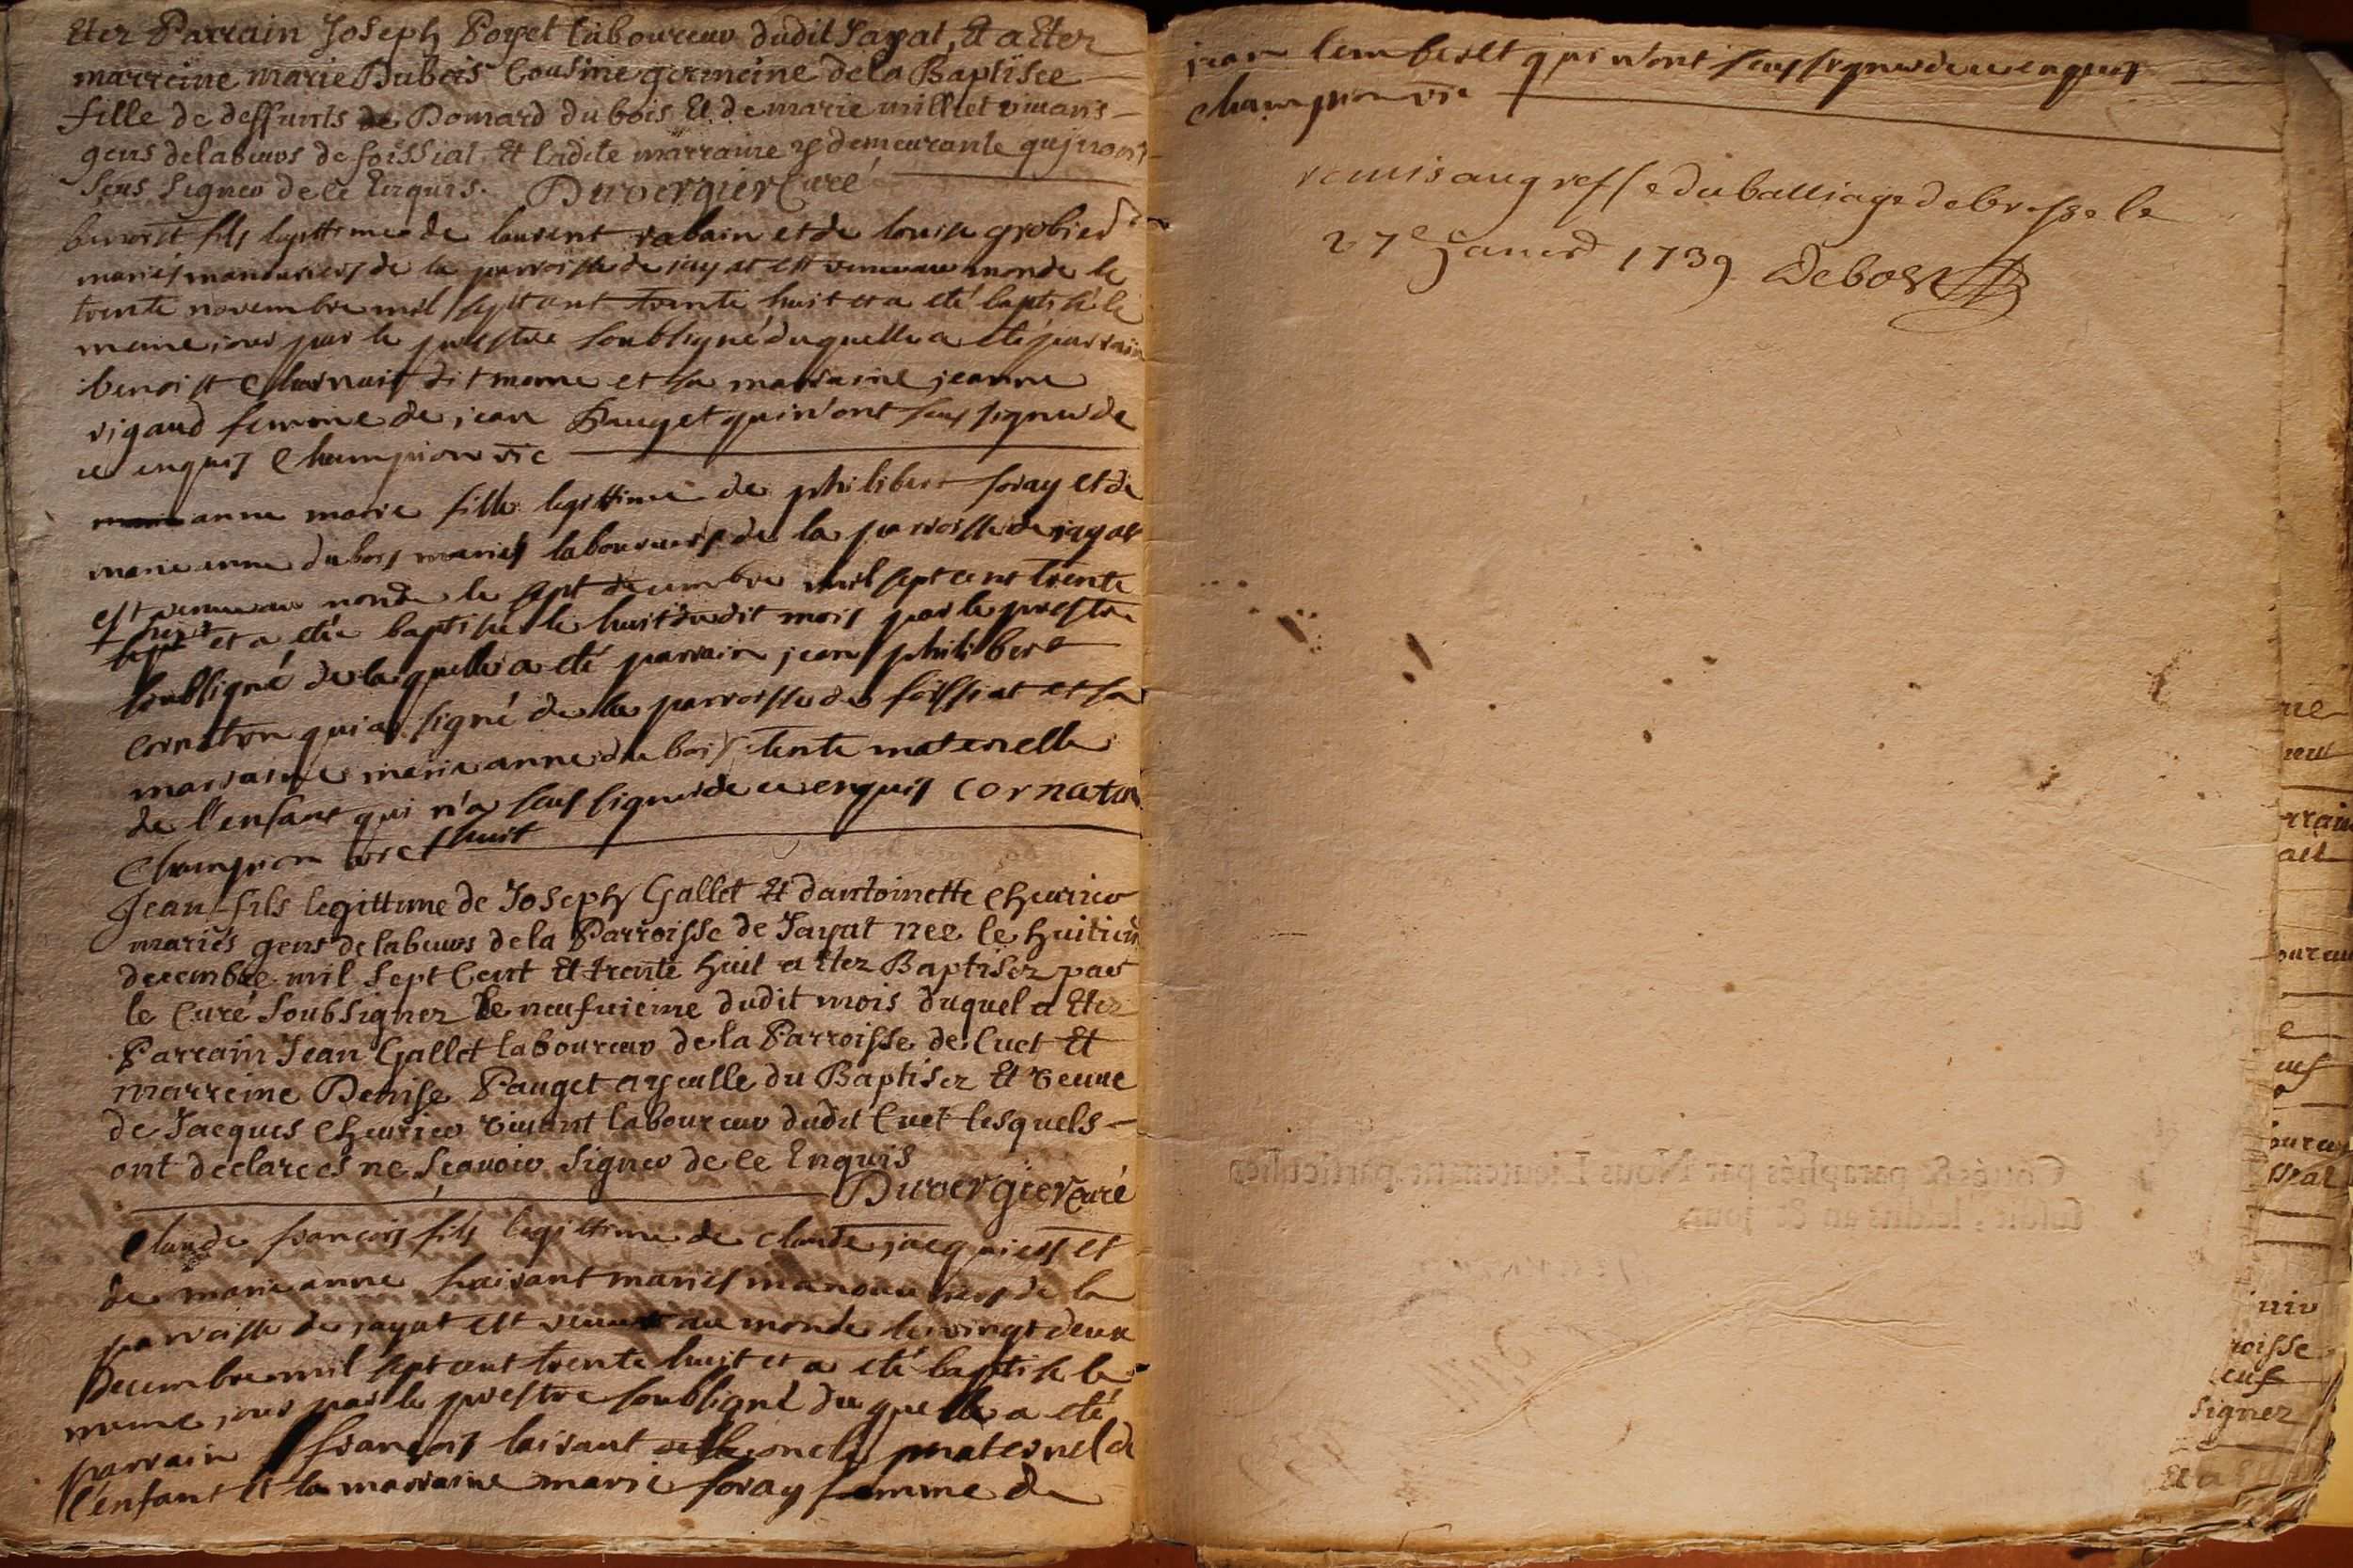 Etez Parrain Joseph Poyet laboureur dudit Jayat, Et a Etez
marreine marie Dubois Cousine germeine de la Baptisee
fille de deffunts de Domard dubois Et de marie millet vivans
gens de labeurs de foissiat Et ladite marraine y demeurante qui n'ont
sceus signer de ce Enquis. Duvergier Curé
benoist fils legittime de laurent rabuin et de louise grobier
mariés manouvriers de la parroisse de jayat est venu au monde le
trente novembre mil sept cent trente huit et a eté baptisé le
meme jour par le prestre soubsigné duquelle a eté parrain
benoist Charnait dit mome et sa marraine jeanne
rigaud femme de jean Pauget qui n'ont sceus signer de
ce enquis Champion vic
anne marie fille legittime de philibert foray et de
marie anne dubois mariés laboureurs de la parroisse de jayat
est venue au monde le sept decembre mil sept cent trente
huit et a etée baptisée le huit dudit mois par le prestre
soubsigné de laquelle a eté parrain jean philibert
cornaton qui a signé de la parroisse de foissiat et sa
marraine marie anne du bois tente maternelle
de l'enfant qui n'a sceus signer de ce enquis Cornaton
Champion vic huit
Jean fils legittime de Joseph Gallet Et dantoinette Cheurier
mariés gens de labeurs de la Parroisse de Jayat nee le huitiem
decembre mil sept Cent Et trente huit a Etez Baptisez par
le Curé soubsignez le neufuieme dudit mois duquel a Etez
Parrain Jean Gallet laboureur de la Parroisse de Cuet Et
marreine Denise Pauget ayeulle du Baptisez Et veuve
de Jacques Cheurier vivant laboureur dudit Cuet lesquels
ont declarees ne sçavoir signer de ce Enquis
Duvergier Curé
Claude francois fils legittime de claude jacquiers et
de marie anne haisant mariés manouvriers de la
parroisse de jayat est venu au monde le vingt deux
Decembre mil sept cent trente huit et a eté baptisé le
meme jour par le prestre soubsigné duquelle a eté
parrain francois laisant oncle maternel de
l'enfant et la marraine marie foray femme de
jean lemberet qui n'ont sceus signer de ce enquis
Champion vic
remis au greffe du balliage de bresse le
27e Janier 1739 Debost